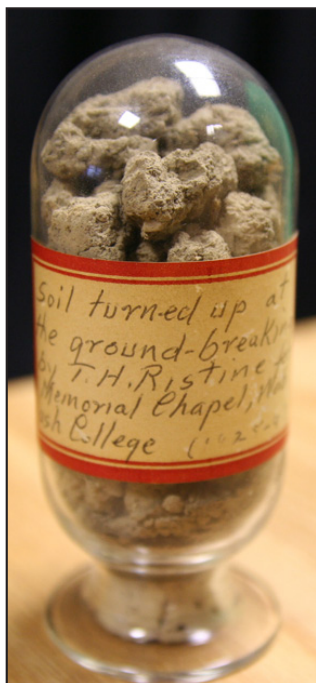 Soil turned up at
the ground-breaking
by T.H. Ristine
Memorial Chapel,
ash College